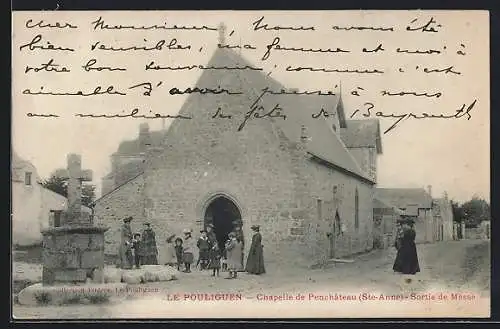 Cher Monsieur, Nous avons été
bien sensibles, ma femme et moi, à
votre bon souvenir, comme c'est
aimable d'avoir pensé à nous
au milieu des fêtes de Bayreuth
LE POULIGUEN — Chapelle de Penchâteau (Ste-Anne) - Sortie de Messe